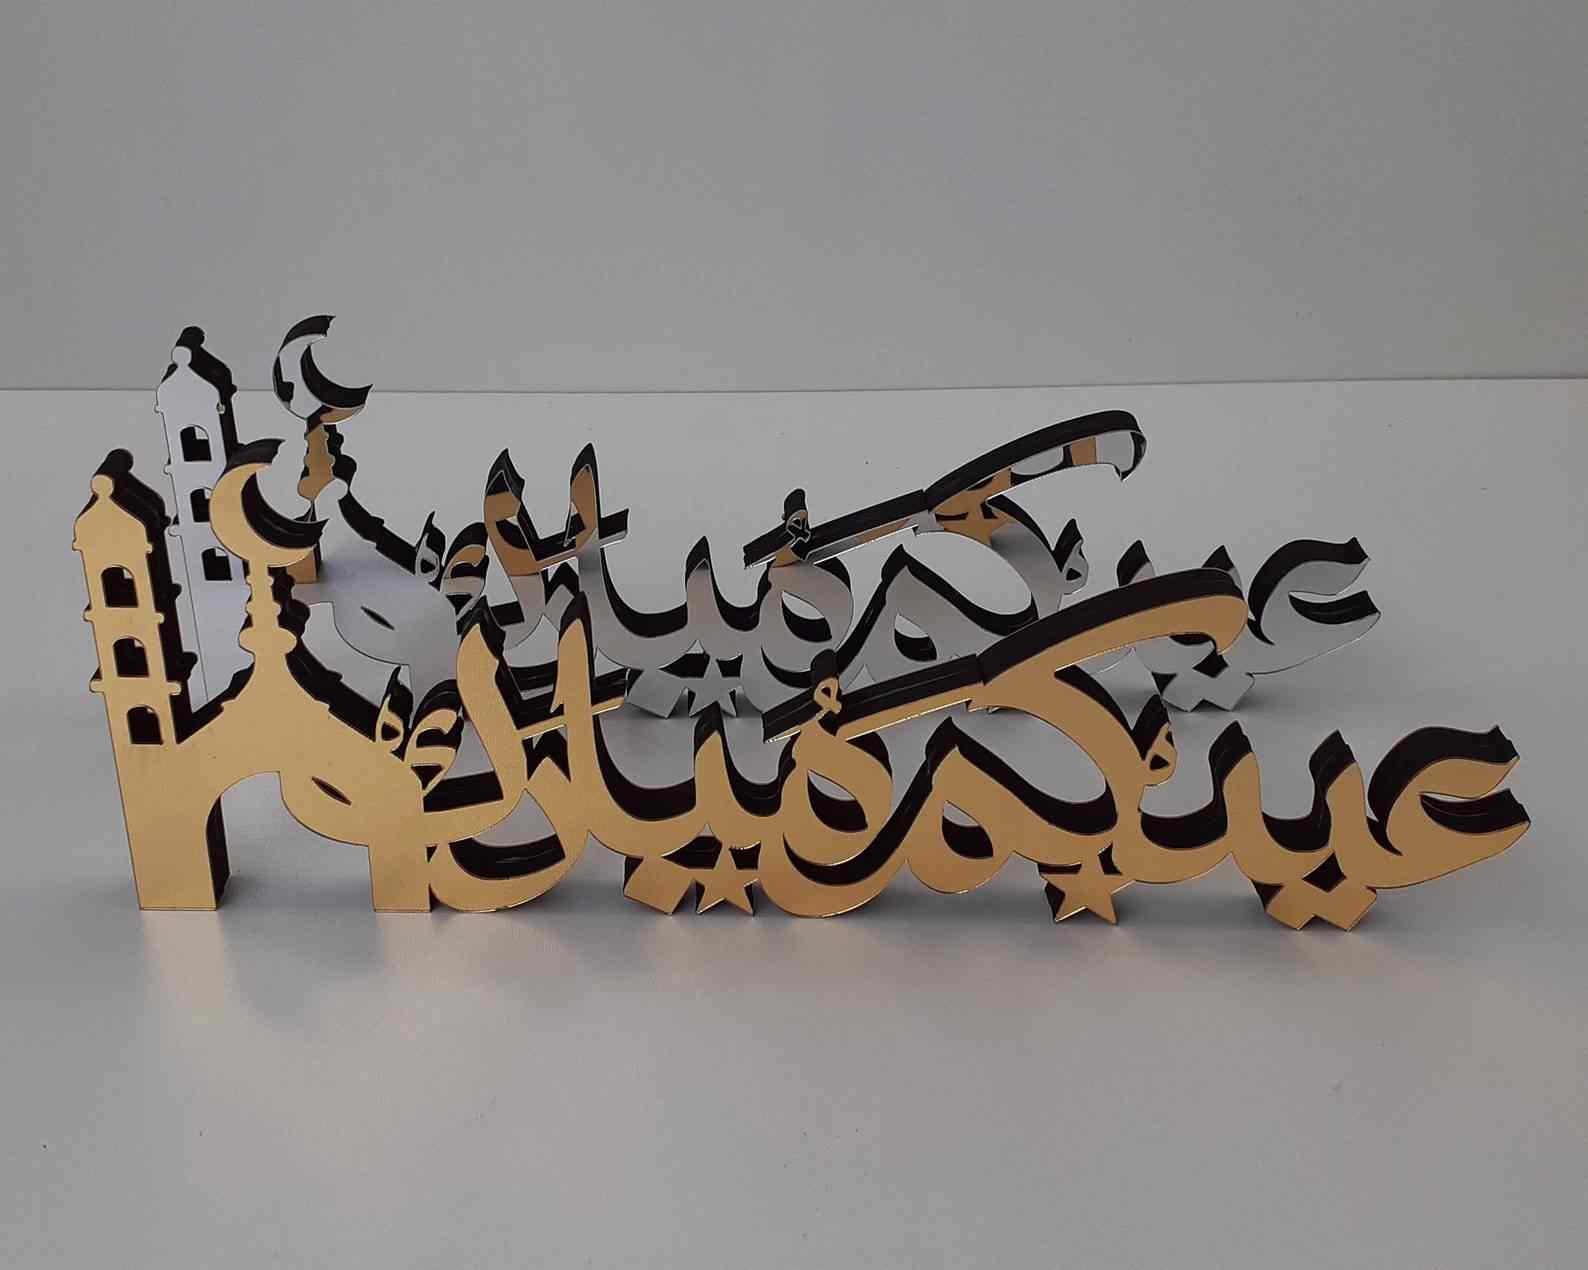 عيدكم مُبارك
عيدكم مُبارك